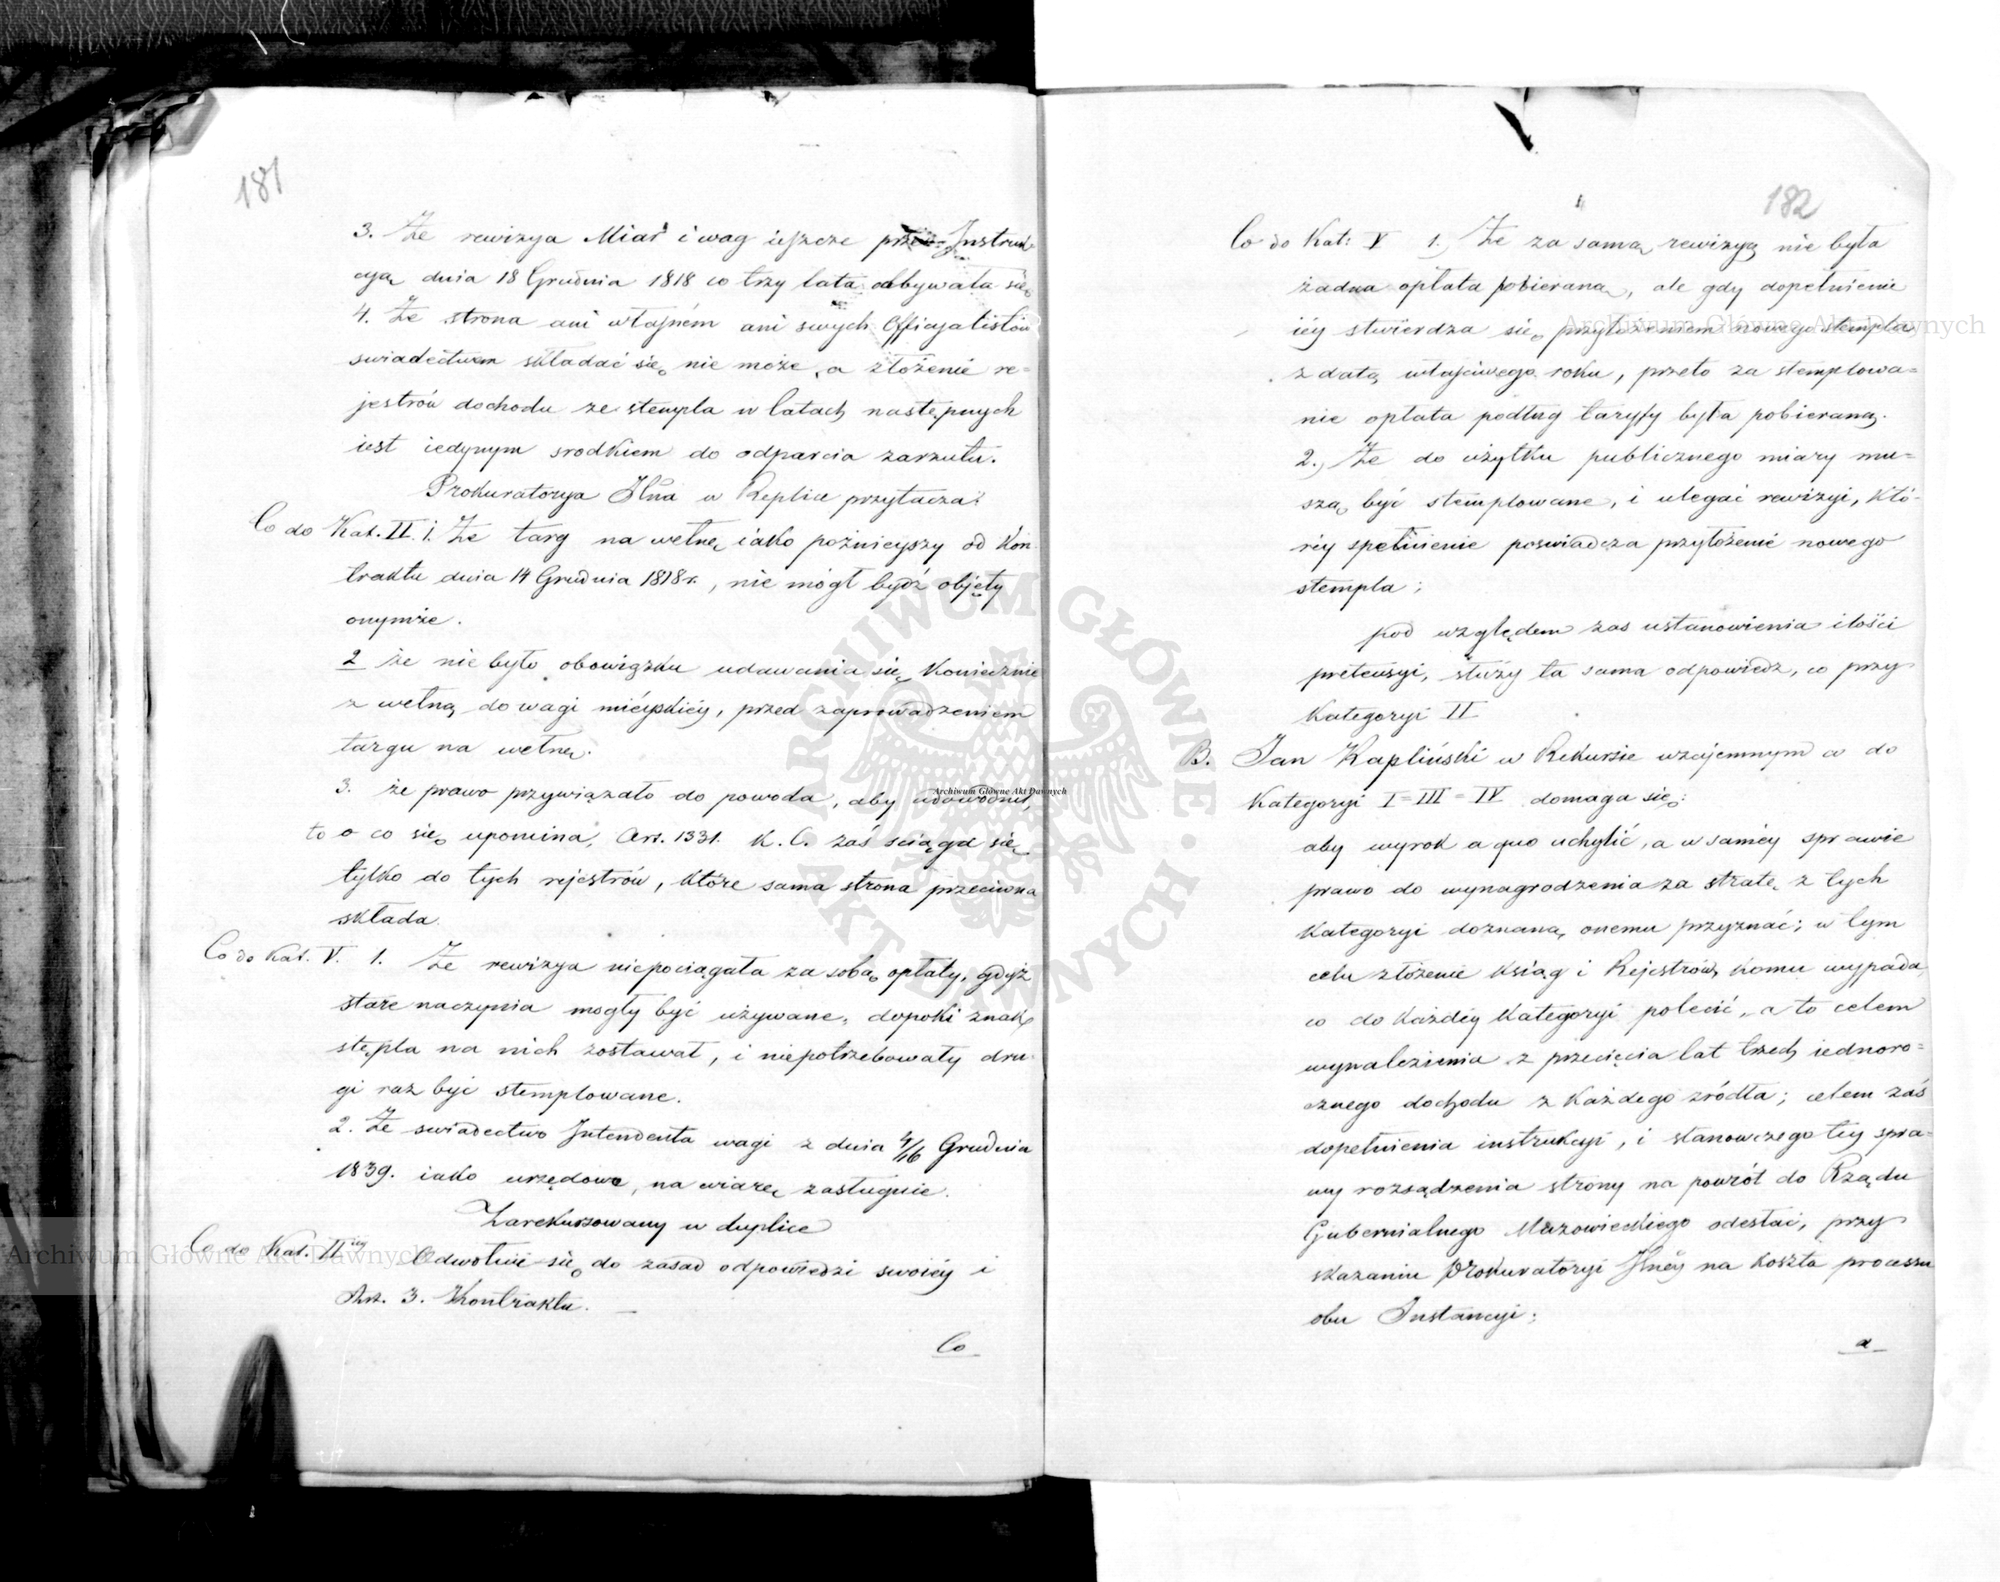 181
3. Że rewizya Miar i wag ieszcze przez Instruk
cyą dnia 18 Grudnia 1818 co trzy lata odbywała się
4. Że strona ani własném ani swych Officyalistów
swiadectwem składać się nie może, a złożenie re=
jestrów dochodu ze stempla w latach następnych
iest iedynym srodkiem do odparcia zarzutu.
Prokuratorya Jlna w Replice przytacza:
Co do Kat. II. 1. Że targ na wełnę iako poźnieyszy od Kon
traktu dnia 14 Grudnia 1818 r., nie mógł bydź objęty
onymże.
2 że nie było obowiązku udawania się koniecznie
z wełną do wagi miéyskiéy, przed zaprowadzeniem
targu na wełnę.
3. że prawo przywiązało do powoda, aby udowodnił,
to o co się upomina, Art. 1331. K. C. zaś sciąga się
tylko do tych rejestrów, które sama strona przeciwna
składa.
Co do Kat. V. 1. Że rewizya niepociągała za sobą opłaty, gdyż
stare naczynia mogły być używane, dopoki znak
stępla na nich zostawał, i niepotrzebowały dru
gi raz być stemplowane.
2. Że swiadectwo Intendenta wagi z dnia 4/16 Grudnia
1839. iako urzędowe, na wiarę zasługuie.
Zarekursowany w duplice
Co do Kat. II iéy Odwołuie się do zasad odpowiedzi swoiéy i
Art. 3. Kontraktu. —
Co
182
Co do Kat: V 1.) Że za samą rewizyą nie była
żadna opłata pobieraną, ale gdy dopełnienie
iéy stwierdza się przyłożeniem nowego stempla
z datą właściwego roku, przeto za stemplowa=
nie opłata podług taryfy była pobieraną.
2.) Że do użytku publicznego miary mu=
szą być stemplowane, i ulegać rewizyi, któ-
réy spełnienie poswiadcza przyłożenie nowego
stempla;
pod względem zas ustanowienia ilości
pretensyi, służy ta sama odpowiedz, co przy
Kategoryi II
B. Jan Kapliński w Rekursie wzajemnym co do
Kategoryi I = III = IV domaga się:
aby wyrok a quo uchylić, a w saméy sprawie
prawo do wynagrodzenia za stratę z tych
Kategoryi doznaną onemu przyznać; w tym
celu złożenie ksiąg i Rejestrów, komu wypada
co do każdéy Kategoryi polecić, a to celem
wynalezienia z przecięcia lat trzech iednoro=
cznego dochodu z każdego zródła; celem zaś
dopełnienia instrukcyi, i stanowczego téy spra=
wy rozsądzenia strony na powrót do Rządu
Gubernialnego Mazowieckiego odesłać, przy
skazaniu Prokuratoryi Jlnéy na koszta processu
obu Instancyi;
a
Archiwum Główne Akt Dawnych
Archiwum Główne Akt Dawnych
Archiwum Główne Akt Dawnych
ARCHIWUM GŁÓWNE AKT DAWNYCH